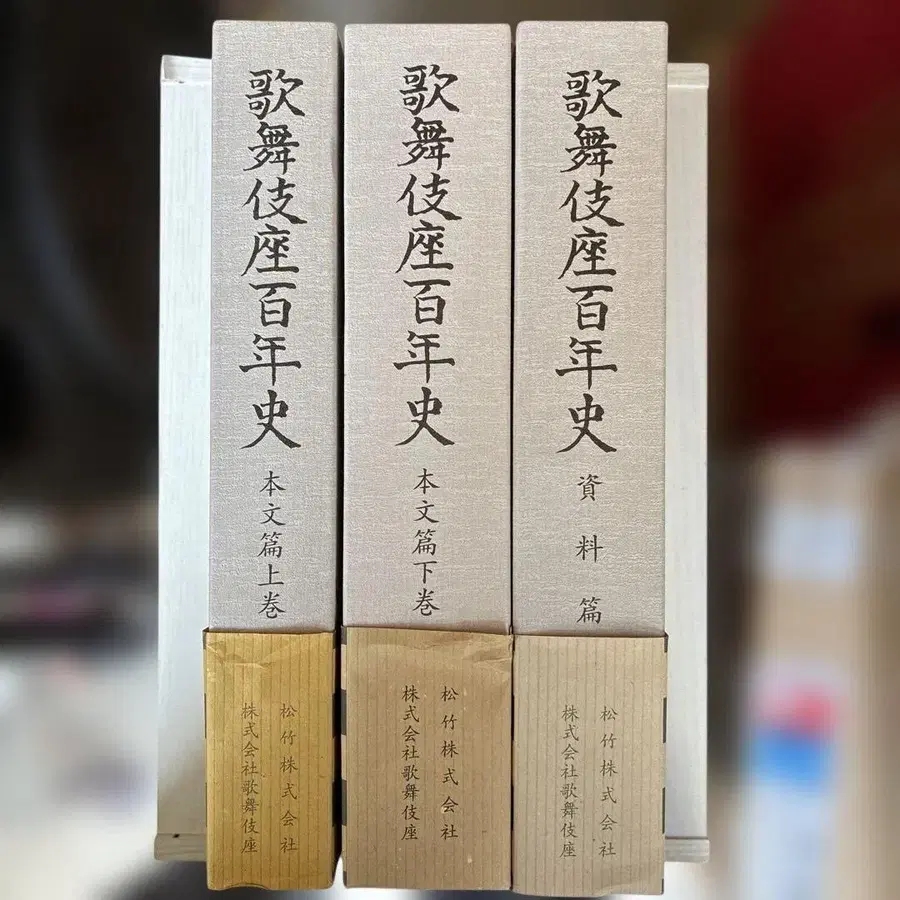 歌舞伎座百年史
本文篇上巻
松竹株式会社
株式会社歌舞伎座
歌舞伎座百年史
本文篇下巻
松竹株式会社
株式会社歌舞伎座
歌舞伎座百年史
資料篇
松竹株式会社
株式会社歌舞伎座